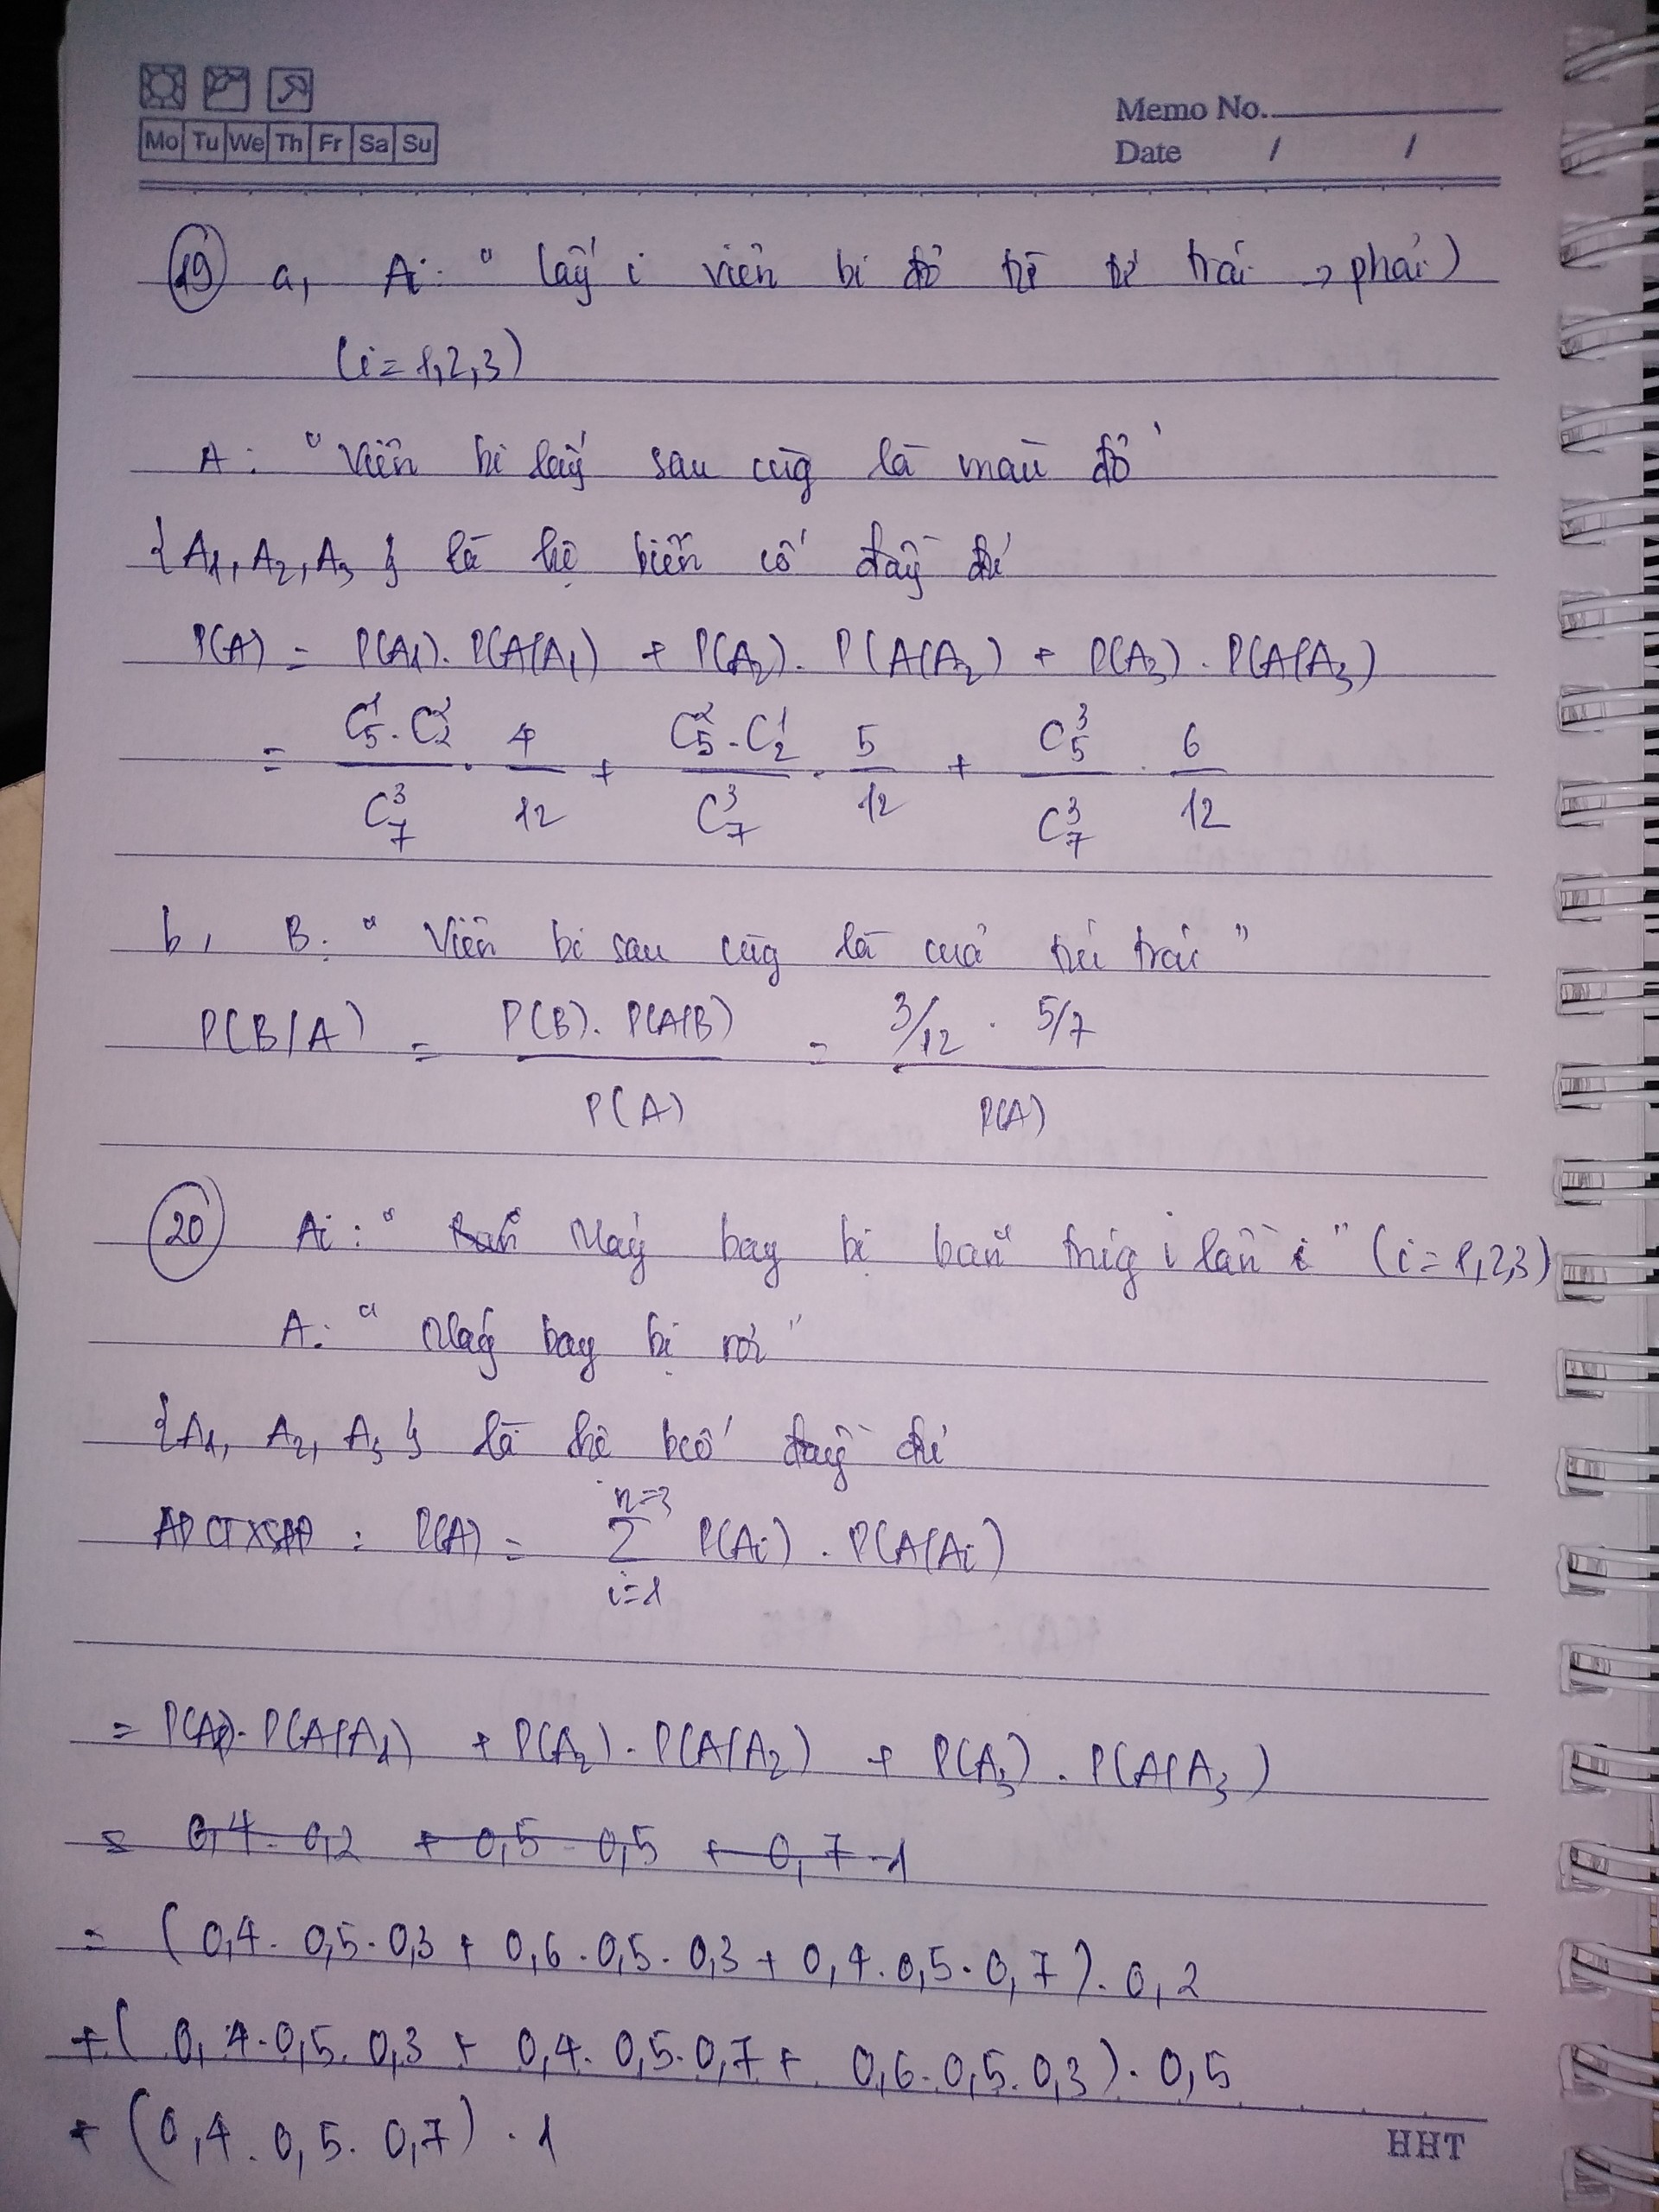 Mo Tu We Th Fr Sa Su
Memo No.
Date / /
19 a, Ai: " lấy i viên bi đỏ từ trái → phải)
(i = 1,2,3)
A: " Viên bi lấy sau cùg là màu đỏ "
{A1, A2, A3 } là hệ biến cố đầy đủ
P(A) = P(A1). P(A/A1) + P(A2). P(A/A2) + P(A3). P(A/A3)
= C₅¹.C₂²/C₇³ . 4/12 + C₅².C₂¹/C₇³ . 5/12 + C₅³/C₇³ . 6/12
b, B: " Viên bi sau cùg là của túi trái "
P(B/A) = P(B). P(A/B)/P(A) = 3/12 . 5/7/P(A)
20 Ai: " Máy bay bị bắn trúg i lần " (i = 1,2,3)
A: " Máy bay bị rơi "
{A1, A2, A3 } là hệ bcố đầy đủ
ADCTXSĐĐ : P(A) = n=3 Σ i=1 P(Ai) . P(A/Ai)
= P(A1). P(A/A1) + P(A2). P(A/A2) + P(A3) . P(A/A3)
= 0,4 . 0,2 + 0,5 . 0,5 + 0,7 . 1
= ( 0,4 . 0,5 . 0,3 + 0,6 . 0,5 . 0,3 + 0,4 . 0,5 . 0,7 ). 0,2
+ ( 0,4 . 0,5 . 0,3 + 0,4 . 0,5 . 0,7 + 0,6 . 0,5 . 0,3 ) . 0,5
+ (0,4 . 0,5 . 0,7) . 1
HHT